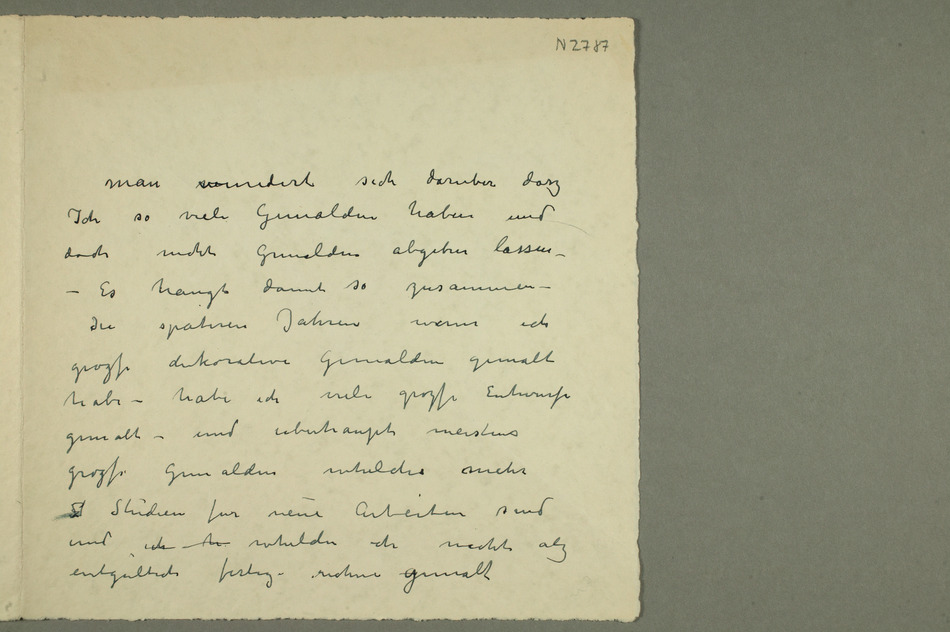 N2787
man wundert sich daruber dasz
Ich so viele Gemälden haben und
doch nicht Gemälden abgeben lassen –
– Es hangt damit so zusammen –
Die spateren Jahren wenn ich
grozse dekorative Gemälden gemalt
habe – habe ich viele grozse Entwurfe
gemalt – und ueberhaupt meistens
grozse Gemalden whelche mehr
Studien fur neue Arbeiten sind
und ich whelche ich nicht alz
entgultich fertig gemalt